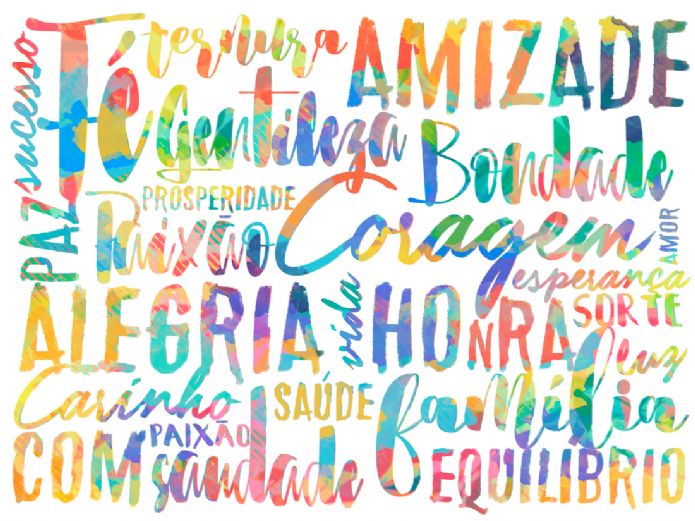 sucesso
Fé
ternura
AMIZADE
Gentileza
Bondade
PROSPERIDADE
PAZ
Paixão
Coragem
AMOR
esperança
ALEGRIA
vida
HONRA
SORTE
luz
Carinho
SAÚDE
família
PAIXÃO
COM
saudade
EQUILIBRIO